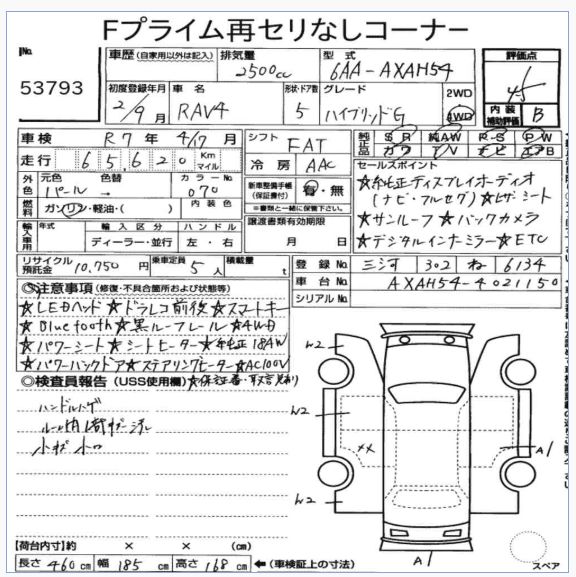 Fプライム再セリなしコーナー
No.
53793
車歴 (自家用以外は記入) 排気量 2500cc 型式 6AA-AXAH54 評価点 4.5
初度登録年月 2/9月 車名 RAV4 形状・ドア数 5 グレード ハイブリッドG 2WD 4WD 内装補助評価 B
車検 R7年 4/17月 シフト FAT 純正品 SR 純AW PS PW
カワ TV ナビ エアB
走行 65,620 Km マイル 冷房 AAC
外色 元色 パール 色替 → カラーNo. 070
新車整備手帳(保証書付) 有・無
※書類と一緒に保管下さい
セールスポイント
★純正ディスプレイオーディオ
(ナビ・フルセグ)★レザーシート
★サンルーフ★バックカメラ
★デジタルインナーミラー★ETC
燃料 ガソリン・軽油・( ) 内装色
輸入車用 年式 輸入区分 ハンドル
ディーラー・並行 左・右
譲渡書類有効期限
月 日
リサイクル預託金 10,750円 乗車定員 5人 積載量 t
登録No. 三河 302 ね 6134
車台No. AXAH54-4021150
シリアルNo.
◎注意事項 (修復・不具合箇所および状態等)
★LEDヘッド★ドラレコ前後★スマートキー
★Bluetooth★黒ルーフレール★4WD
★パワーシート★シートヒーター★純正18AW
★パワーバックドア★ステアリングヒーター★AC100V
◎検査員報告 (USS使用欄) ★保証書・取説有り
ハンドルハゲ
小キズ 小凹
W2
W2
XX
A1
W2
A1
スペア
【荷台内寸】約 × × (cm)
長さ 460cm 幅 185cm 高さ 168cm ←(車検証上の寸法)